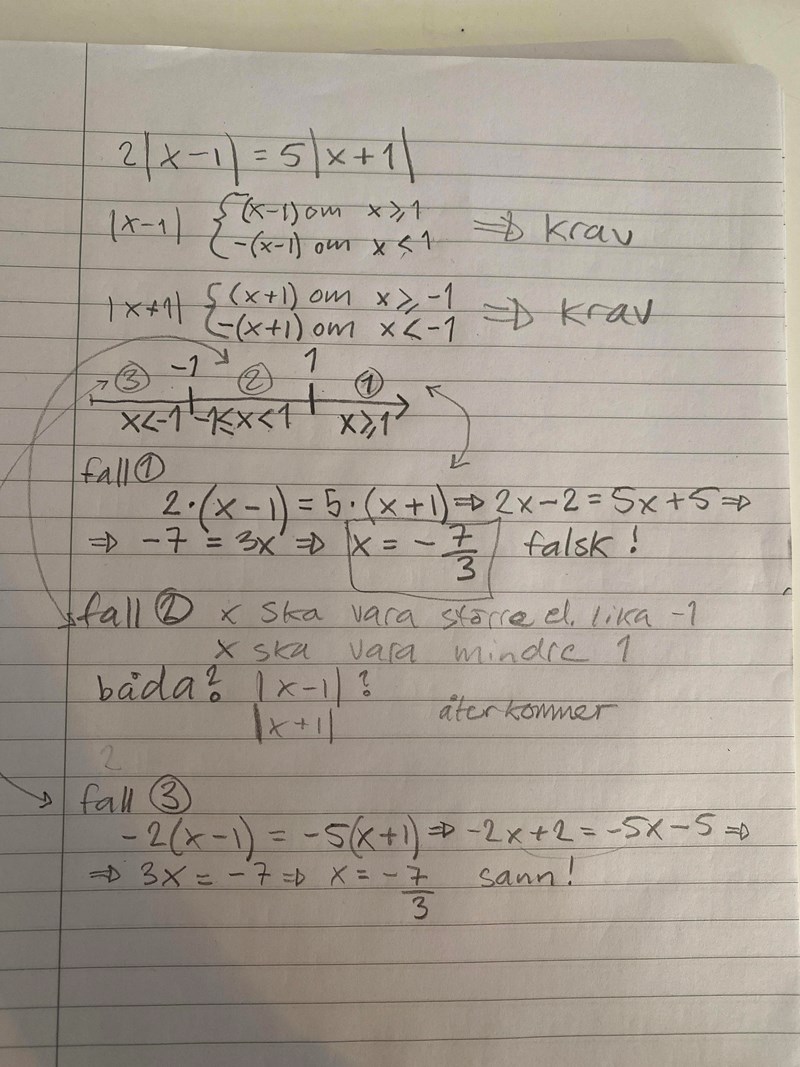 2|x-1| = 5|x+1|
|x-1| { (x-1) om x≥1 ⇒ krav
-(x-1) om x<1
|x+1| { (x+1) om x≥-1 ⇒ krav
-(x+1) om x<-1
③ -1 ② 1 ①
x<-1 -1≤x<1 x≥1
fall ①
2·(x-1) = 5·(x+1) ⇒ 2x-2 = 5x+5 ⇒
⇒ -7 = 3x ⇒ x = -7/3 falsk!
fall ② x ska vara större el. lika -1
x ska vara mindre 1
båda? |x-1| ?
|x+1| återkommer
2
fall ③
-2(x-1) = -5(x+1) ⇒ -2x+2 = -5x-5 ⇒
⇒ 3x = -7 ⇒ x = -7/3 sann!